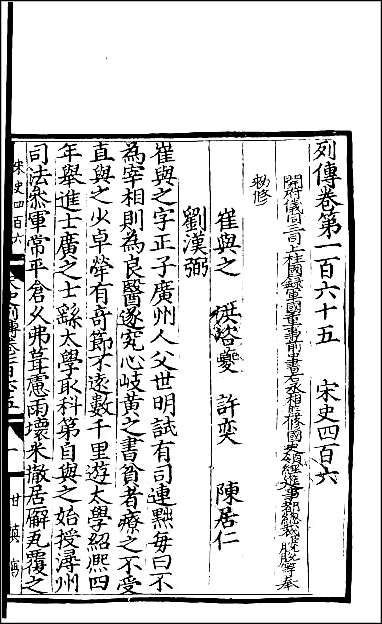 列傳卷第一百六十五　宋史四百六
開府儀同三司上柱國錄軍國重事前中書右丞相監修國史領經筵事都總裁脫脫等奉
勑修
崔與之　洪咨夔　許奕　陳居仁
劉漢弼
崔與之字正子廣州人父世明試有司連黜每曰不
為宰相則為良醫遂究心岐黃之書貧者療之不受
直與之少卓犖有奇節不遠數千里遊太學紹熙四
年舉進士廣之士繇太學取科第自與之始授潯州
司法叅軍常平倉乆弗葺慮雨壞米撤居廨瓦覆之
宋史四百六
一
甘